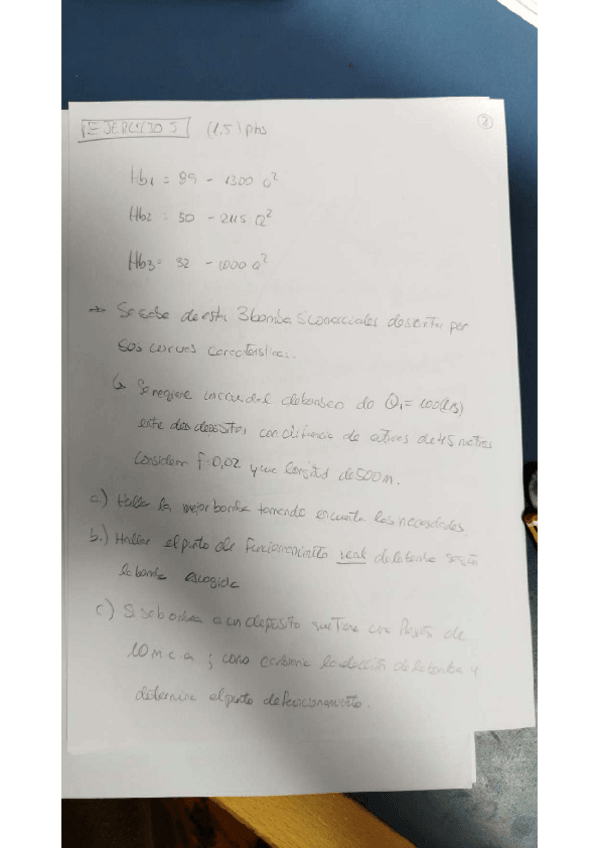 ②
EJERCICIO 5 (1.5) pts
Hb1 = 89 - 1300 Q²
Hb2 = 50 - 245 Q²
Hb3 = 32 - 1000 Q²
→ Se sabe de esta 3 bombas comerciales descritas por
sus curvas características.
↳ Se requiere un caudal de bombeo de Q1 = 100 (l/s)
entre dos depositos, con distancia de alturas de 45 metros
Consideren f = 0,02 y una longitud de 500 m.
a.) Halla la mejor bomba tomando en cuenta las necesidades.
b.) Hallar el punto de funcionamiento real de la bomba según
la bomba escogida
c) Si se bombea a un deposito que tiene una Presión de
10 m c a ; como cambiaria la elección de la bomba y
determine el punto de funcionamiento.